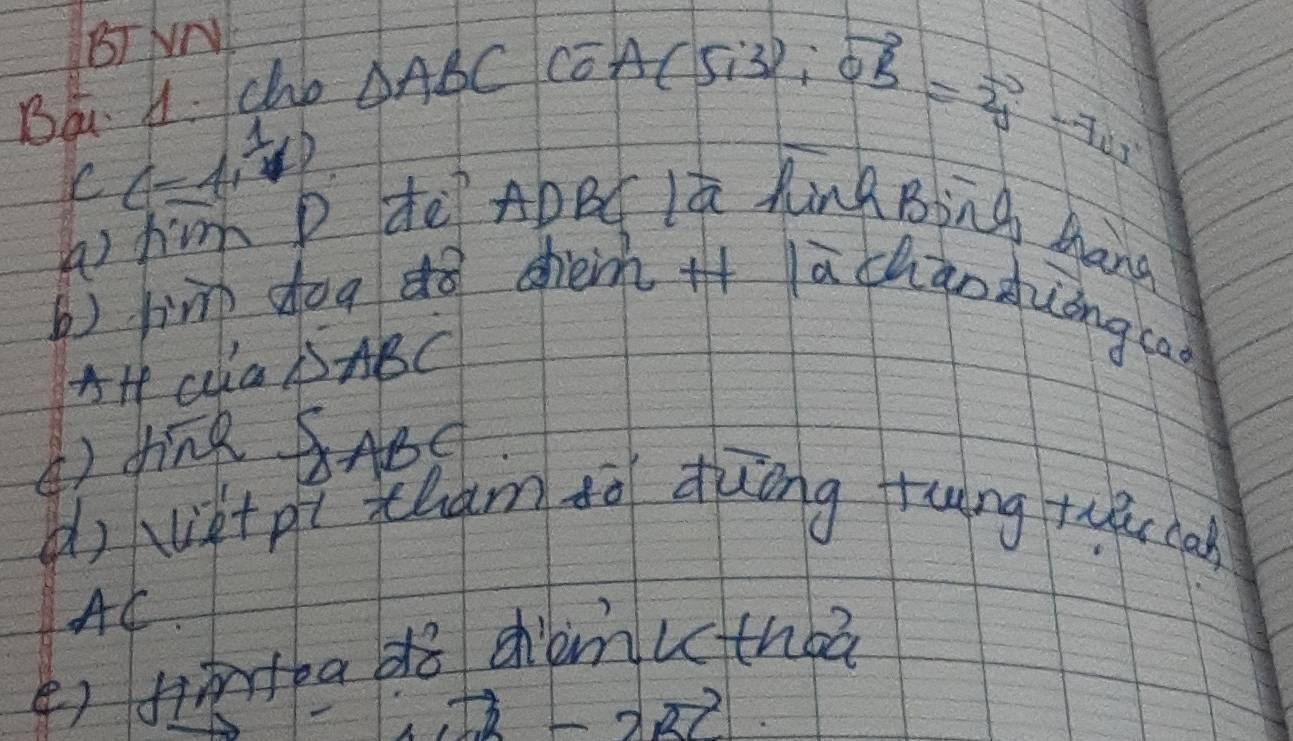 BTVN
Bài 1. Cho ΔABC có A(5;3); OB = 2j - 7i;
C(-4;1)
a) tìm D để ADBC là hình Bình hàng
b) tìm tọa độ điểm H là chân đường cao
AH của ΔABC
c) tính SΔABC.
d) Viết pt tham số đường trung trực cạh
AC.
e) tìm tọa độ điểm K thoả
- 2BC.